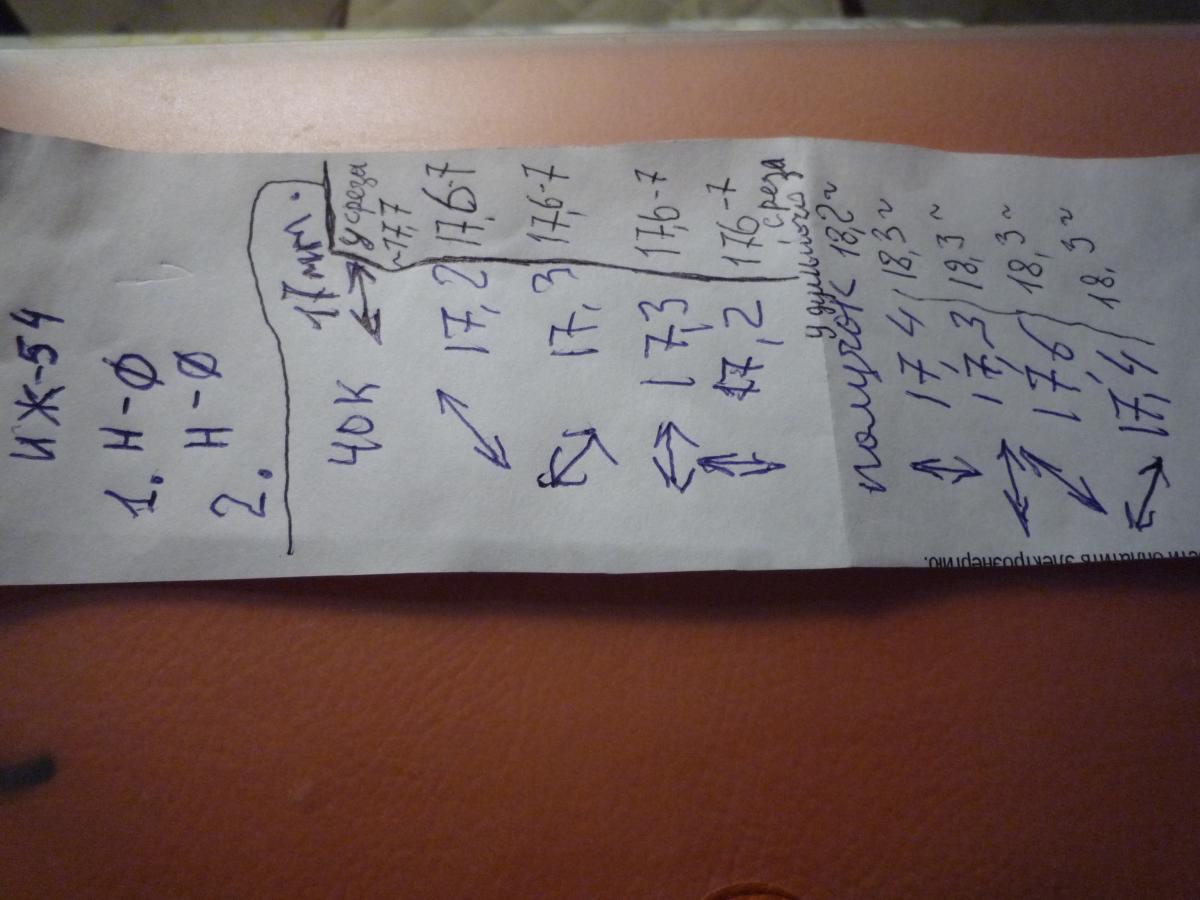 ИЖ-54
1. Н-Ø
2. Н-Ø
17 мм.
ЧОК у среза
~17,7
17,2 17,6-7
17,3 17,6-7
17,3 17,6-7
17,2 176-7
у дульного среза
получок 18,2~
17,4 18,3~
17,3 18,3~
17,6 18,3~
17,4 18,3~
оплатить электроэнергию.